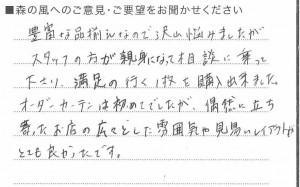 ■森の風へのご意見・ご要望をお聞かせください
豊富な品揃えなので沢山悩みましたが
スタッフの方が親身になって相談に乗って
下さり、満足の行く1枚を購入出来ました。
オーダーカーテンは初めてでしたが、偶然に立ち
寄ったお店の広々とした雰囲気や見易いレイアウトが
とても良かったです。